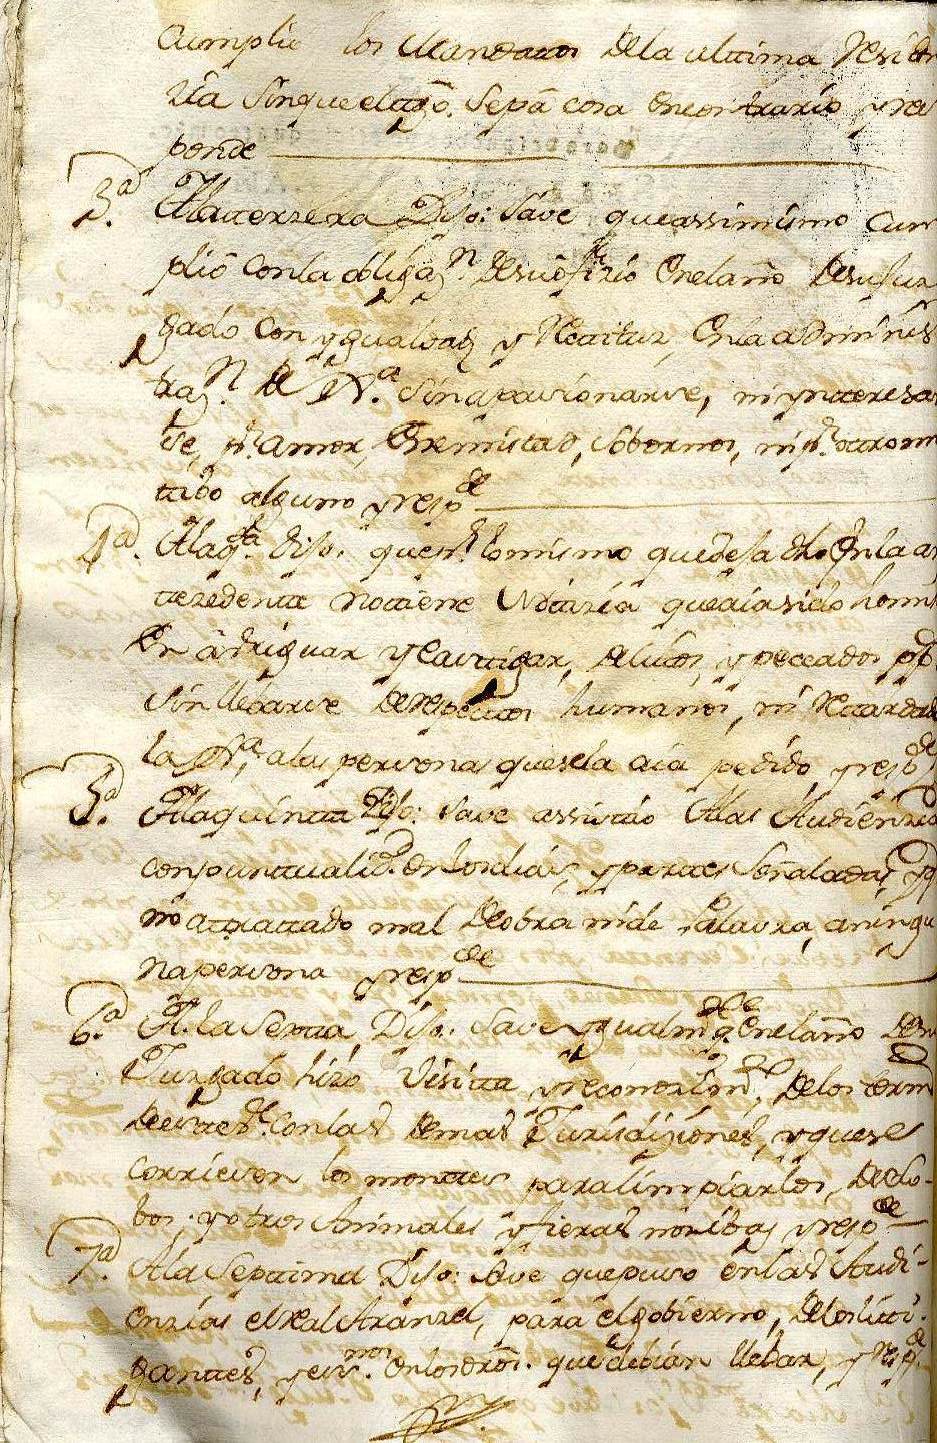 Cumplio los Mandatos de la ultima Residen
zia sin que el tgo. sepa cosa en contrario y res
ponde
3ª. A la terzera Dijo: save que assimismo Cum
plio con la obligaⁿ. de su ofizio en el año de su Juz
gado con ygualdad y Rectitud en la adminis
traⁿ. de Jª. sin apasionarse, ni ynteresar
se, pr. amor, enemistad, sobornos, ni pr. otro mo
tibo alguno y respde
4ª. A la qta. dijo. que pr. lo mismo que deja dho en la an
tezedente no tiene Notizia que aia sido homiso
En abriguar y Castigar, delitos, y peccados ppcos
sin llebarse de respectos humanos, ni Retardado
la Jª. a las personas que se la aia pedido y respde
5ª. A la quinta Dijo: save assistio a las Audienzias
con puntualid. en los dias, y partes señaladas, y q
no a trattado mal de obra ni de Palavra, a ningu
na persona y respde
6ª. A la Sexta Dijo: save ygualmte. q. en el año de su
Juzgado hizo visitta y reconozimto. de los termos
de esta vª. con las demas Jurisdiziones, y que se
corriesen los montes para limpiarlos, de Lo-
bos, y otros Animales y fieras nozibas y respde
7ª. A la Septima Dijo: save que puso en las Audi-
enzias el real Aranzel, para el gobierno, de los liti-
gantes, y essnos. en los dros. que debian llebar, y respde.